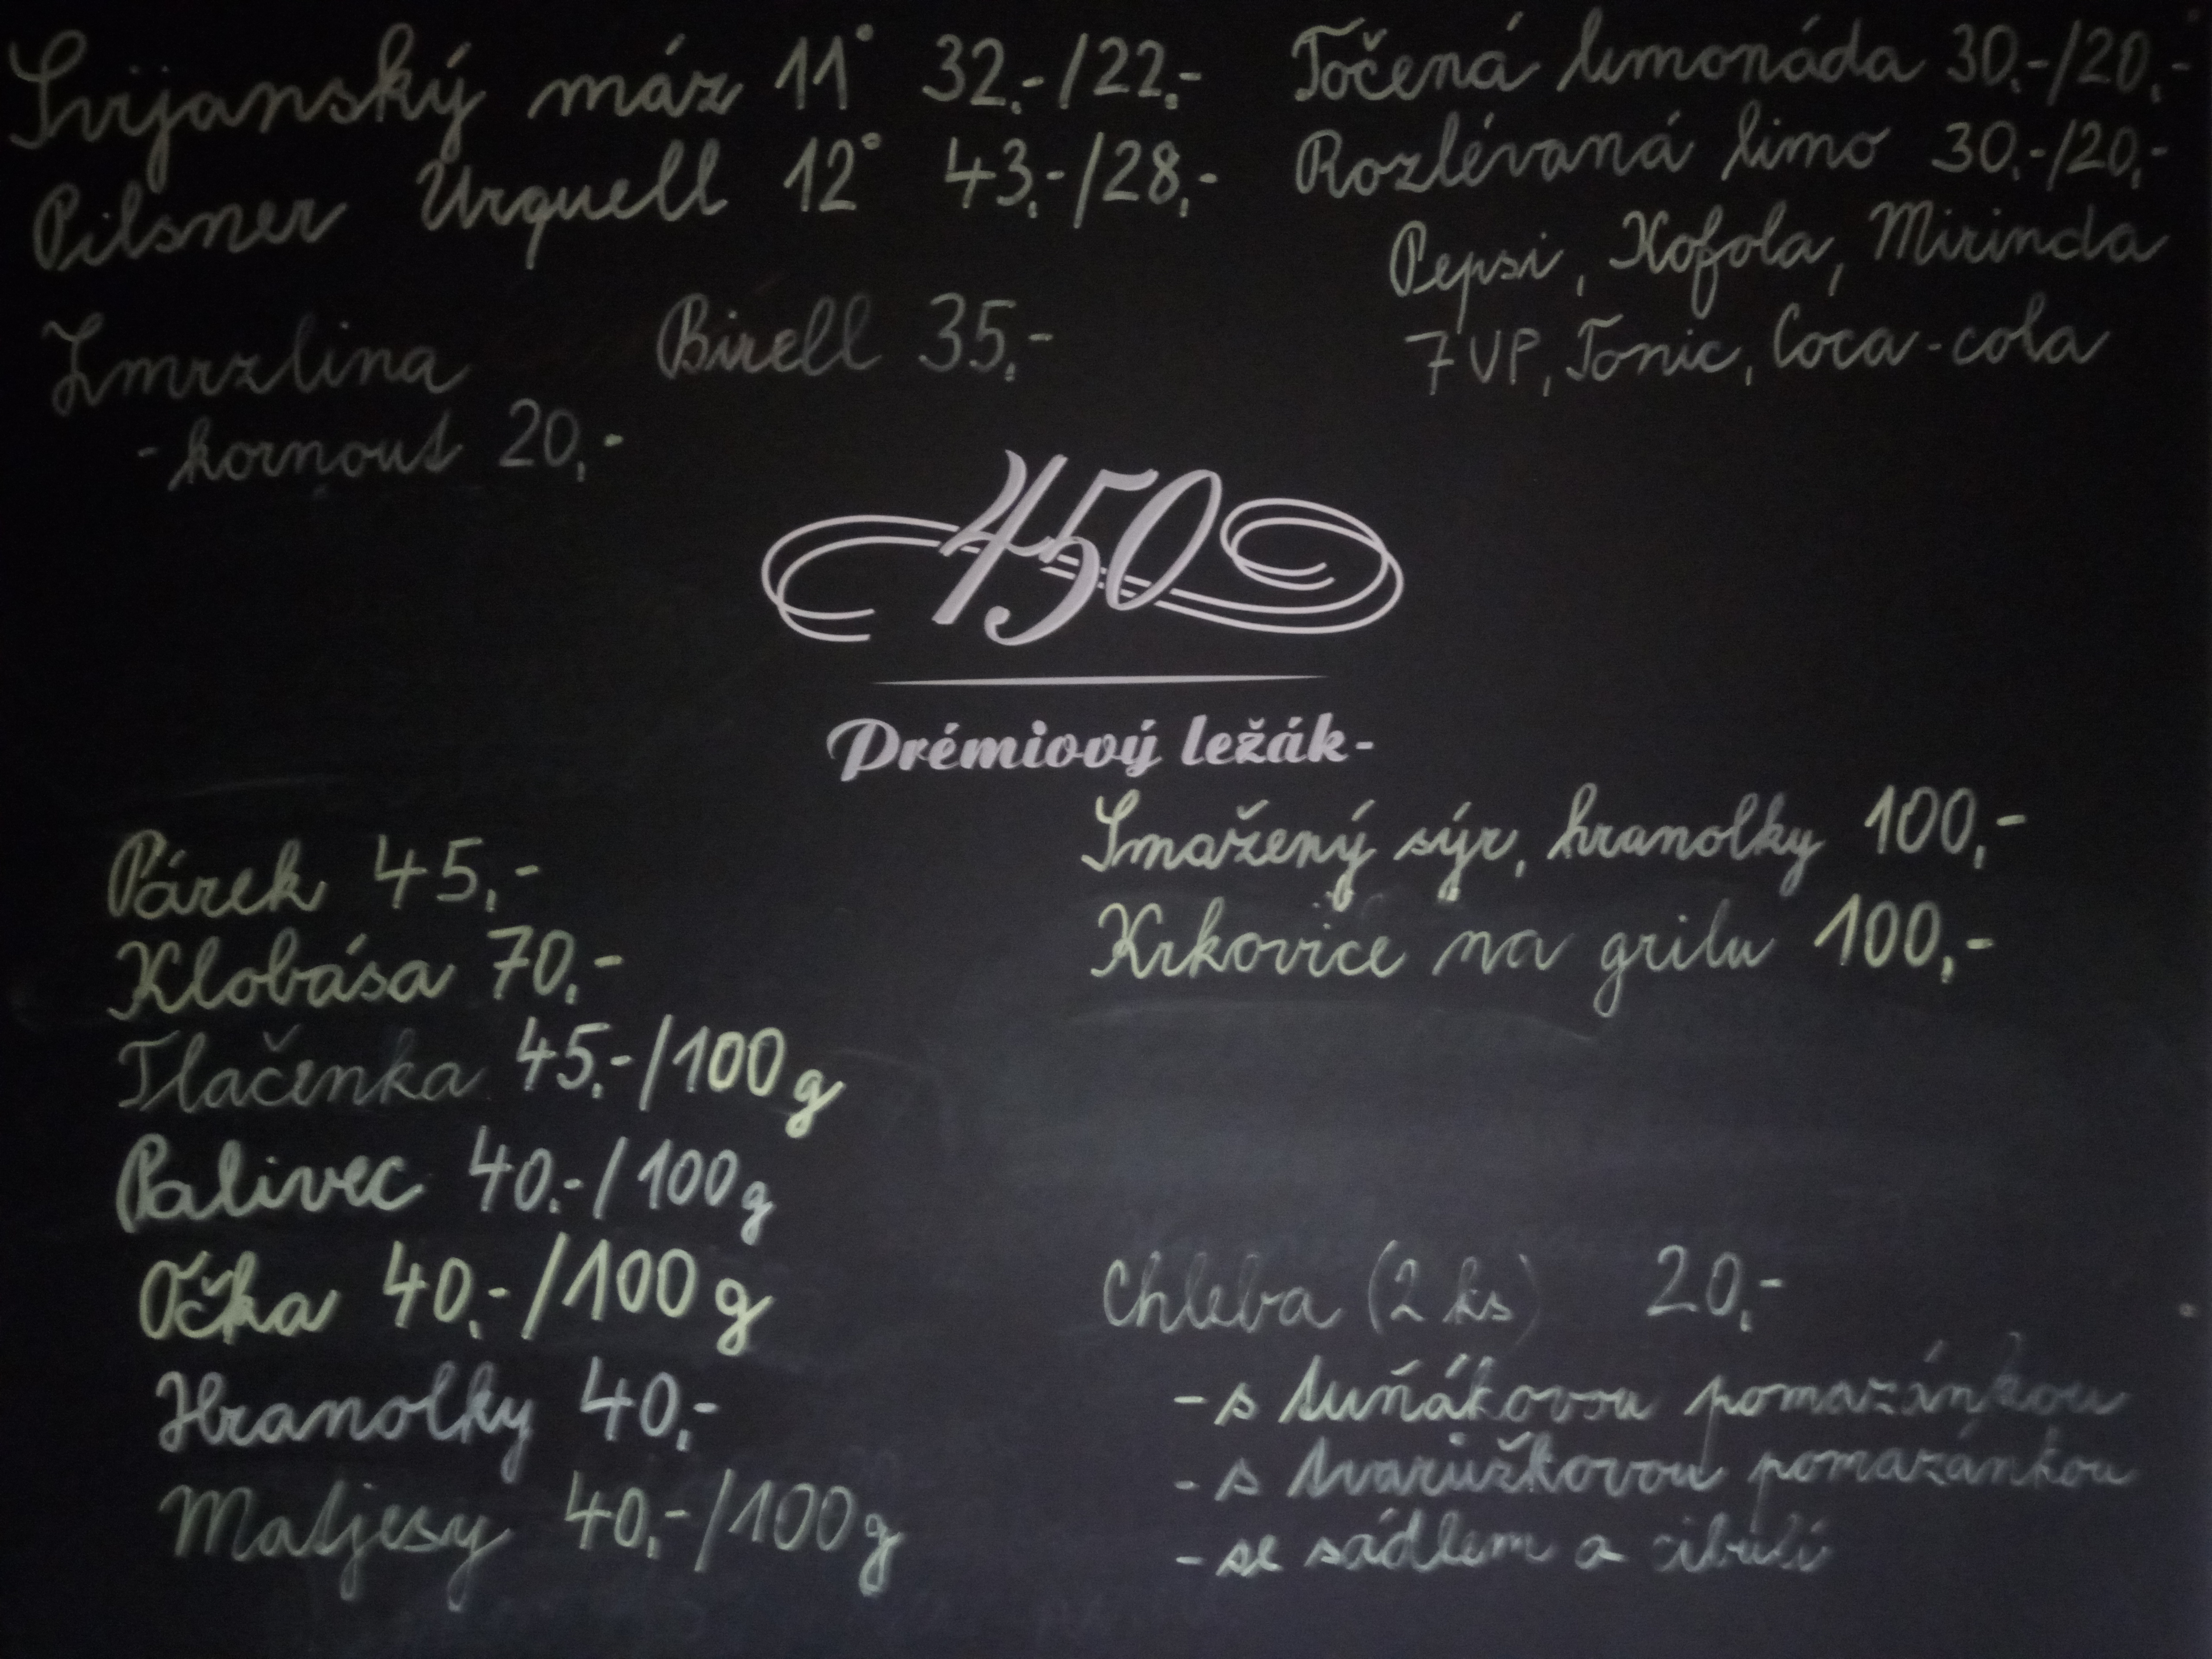 Svijanský máz 11° 32,-/22,-
Pilsner Urquell 12° 43,-/28,-
Zmrzlina
- kornout 20,-
Birell 35,-
Točená limonáda 30,-/20,-
Rozlévaná limo 30,-/20,-
Pepsi, Kofola, Mirinda
7UP, Tonic, Coca-cola
450
Prémiový ležák-
Párek 45,-
Klobása 70,-
Tlačenka 45,-/100g
Palivec 40,-/100g
Očka 40,-/100g
Hranolky 40,-
Matjesy 40,-/100g
Smažený sýr, hranolky 100,-
Krkovice na grilu 100,-
Chleba (2 ks) 20,-
- s tuňákovou pomazánkou
- s tvarůžkovou pomazánkou
- se sádlem a cibulí